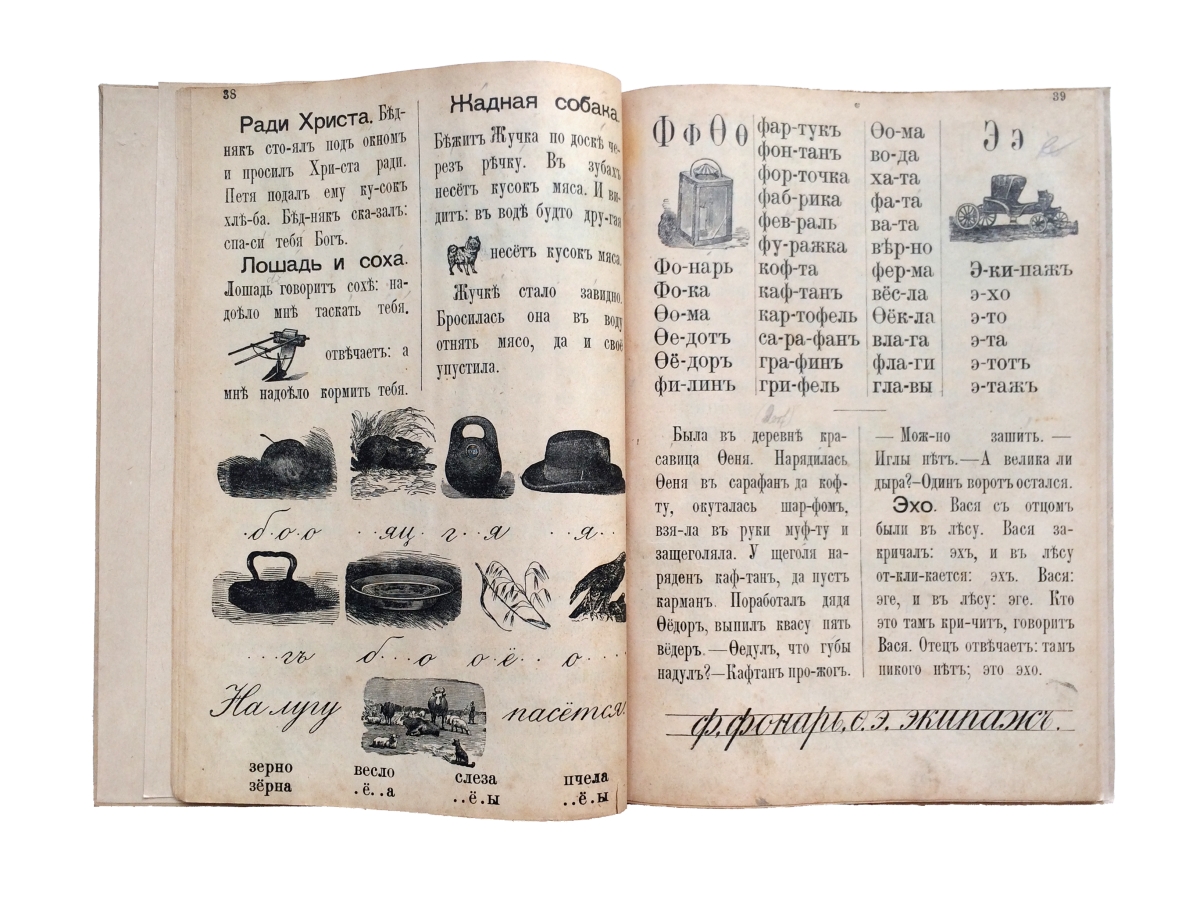 38
Ради Христа. Бѣд-
някъ сто-ялъ подъ окномъ
и просилъ Хри-ста ради.
Петя подалъ ему ку-сокъ
хлѣ-ба. Бѣд-някъ ска-залъ:
спа-си тебя Богъ.
Лошадь и соха.
Лошадь говоритъ сохѣ: на-
доѣло мнѣ таскать тебя.
отвѣчаетъ: а
мнѣ надоѣло кормить тебя.
Жадная собака.
Бѣжитъ Жучка по доскѣ че-
резъ рѣчку. Въ зубахъ
несётъ кусокъ мяса. И ви-
дитъ: въ водѣ будто дру-гая
несётъ кусокъ мяса.
Жучкѣ стало завидно.
Бросилась она въ воду
отнять мясо, да и своё
упустила.
.б.о.о ..яц. г..я ..я...
....гъ б...о о.ё.. о....
На лугу пасётся.
зерно весло слеза пчела
зёрна .ё..а ..ё.ы ..ё.ы
39
Ф ф Ѳ ѳ
Фо-нарь
Фо-ка
Ѳо-ма
Ѳе-дотъ
Ѳё-доръ
фи-линъ
фар-тукъ
фон-танъ
фор-точка
фаб-рика
фев-раль
фу-ражка
коф-та
каф-танъ
кар-тофель
са-ра-фанъ
гра-финъ
гри-фель
Ѳо-ма
во-да
ха-та
фа-та
ва-та
вѣр-но
фер-ма
вёс-ла
Ѳёк-ла
вла-га
фла-ги
гла-вы
Э э
Э-ки-пажъ
э-хо
э-то
э-та
э-тотъ
э-тажъ
Была въ деревнѣ кра-
савица Ѳеня. Нарядилась
Ѳеня въ сарафанъ да коф-
ту, окуталась шар-фомъ,
взя-ла въ руки муф-ту и
защеголяла. У щеголя на-
ряденъ каф-танъ, да пустъ
карманъ. Поработалъ дядя
Ѳёдоръ, выпилъ квасу пять
вёдеръ.—Ѳедулъ, что губы
надулъ?—Кафтанъ про-жогъ.
— Мож-но зашить. —
Иглы нѣтъ.—А велика ли
дыра?—Одинъ воротъ остался.
Эхо. Вася съ отцомъ
были въ лѣсу. Вася за-
кричалъ: эхъ, и въ лѣсу
от-кли-кается: эхъ. Вася:
эге, и въ лѣсу: эге. Кто
это тамъ кри-читъ, говоритъ
Вася. Отецъ отвѣчаетъ: тамъ
никого нѣтъ; это эхо.
ф. фонарь. ѳ. э. экипажъ.